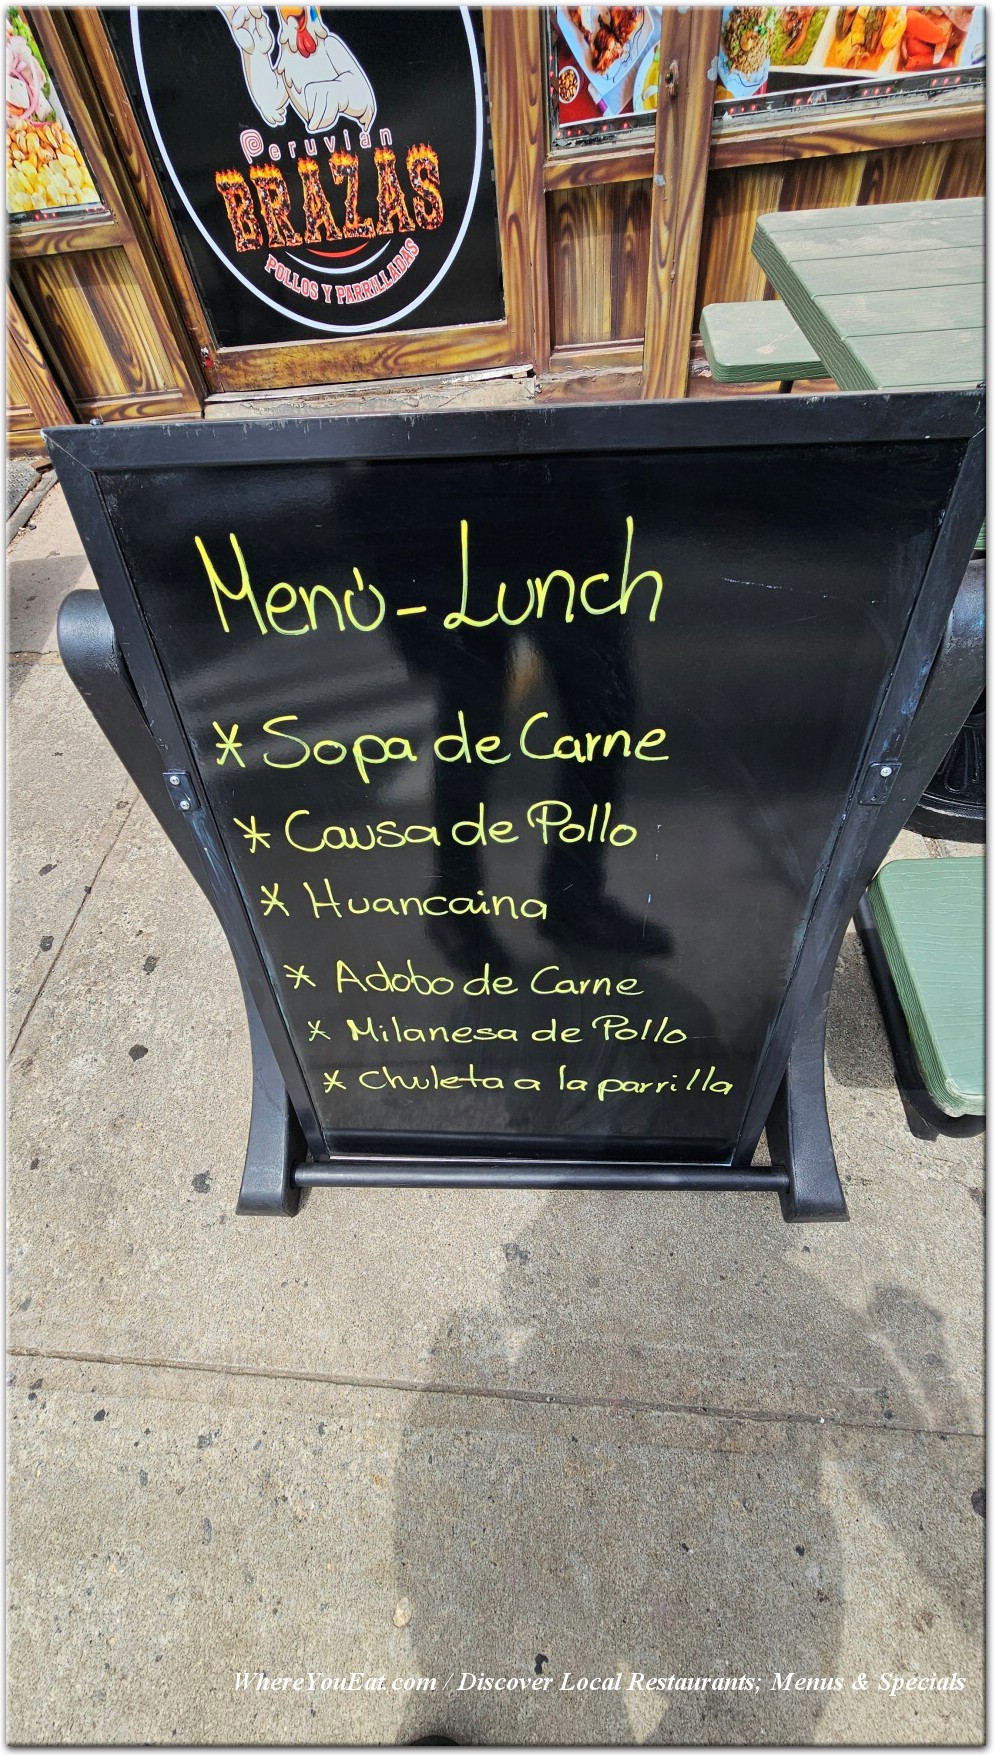 Peruvian
BRAZAS
POLLOS Y PARRILLADAS
Menú - Lunch
* Sopa de Carne
* Causa de Pollo
* Huancaina
* Adobo de Carne
* Milanesa de Pollo
* Chuleta a la parrilla
WhereYouEat.com / Discover Local Restaurants; Menus & Specials